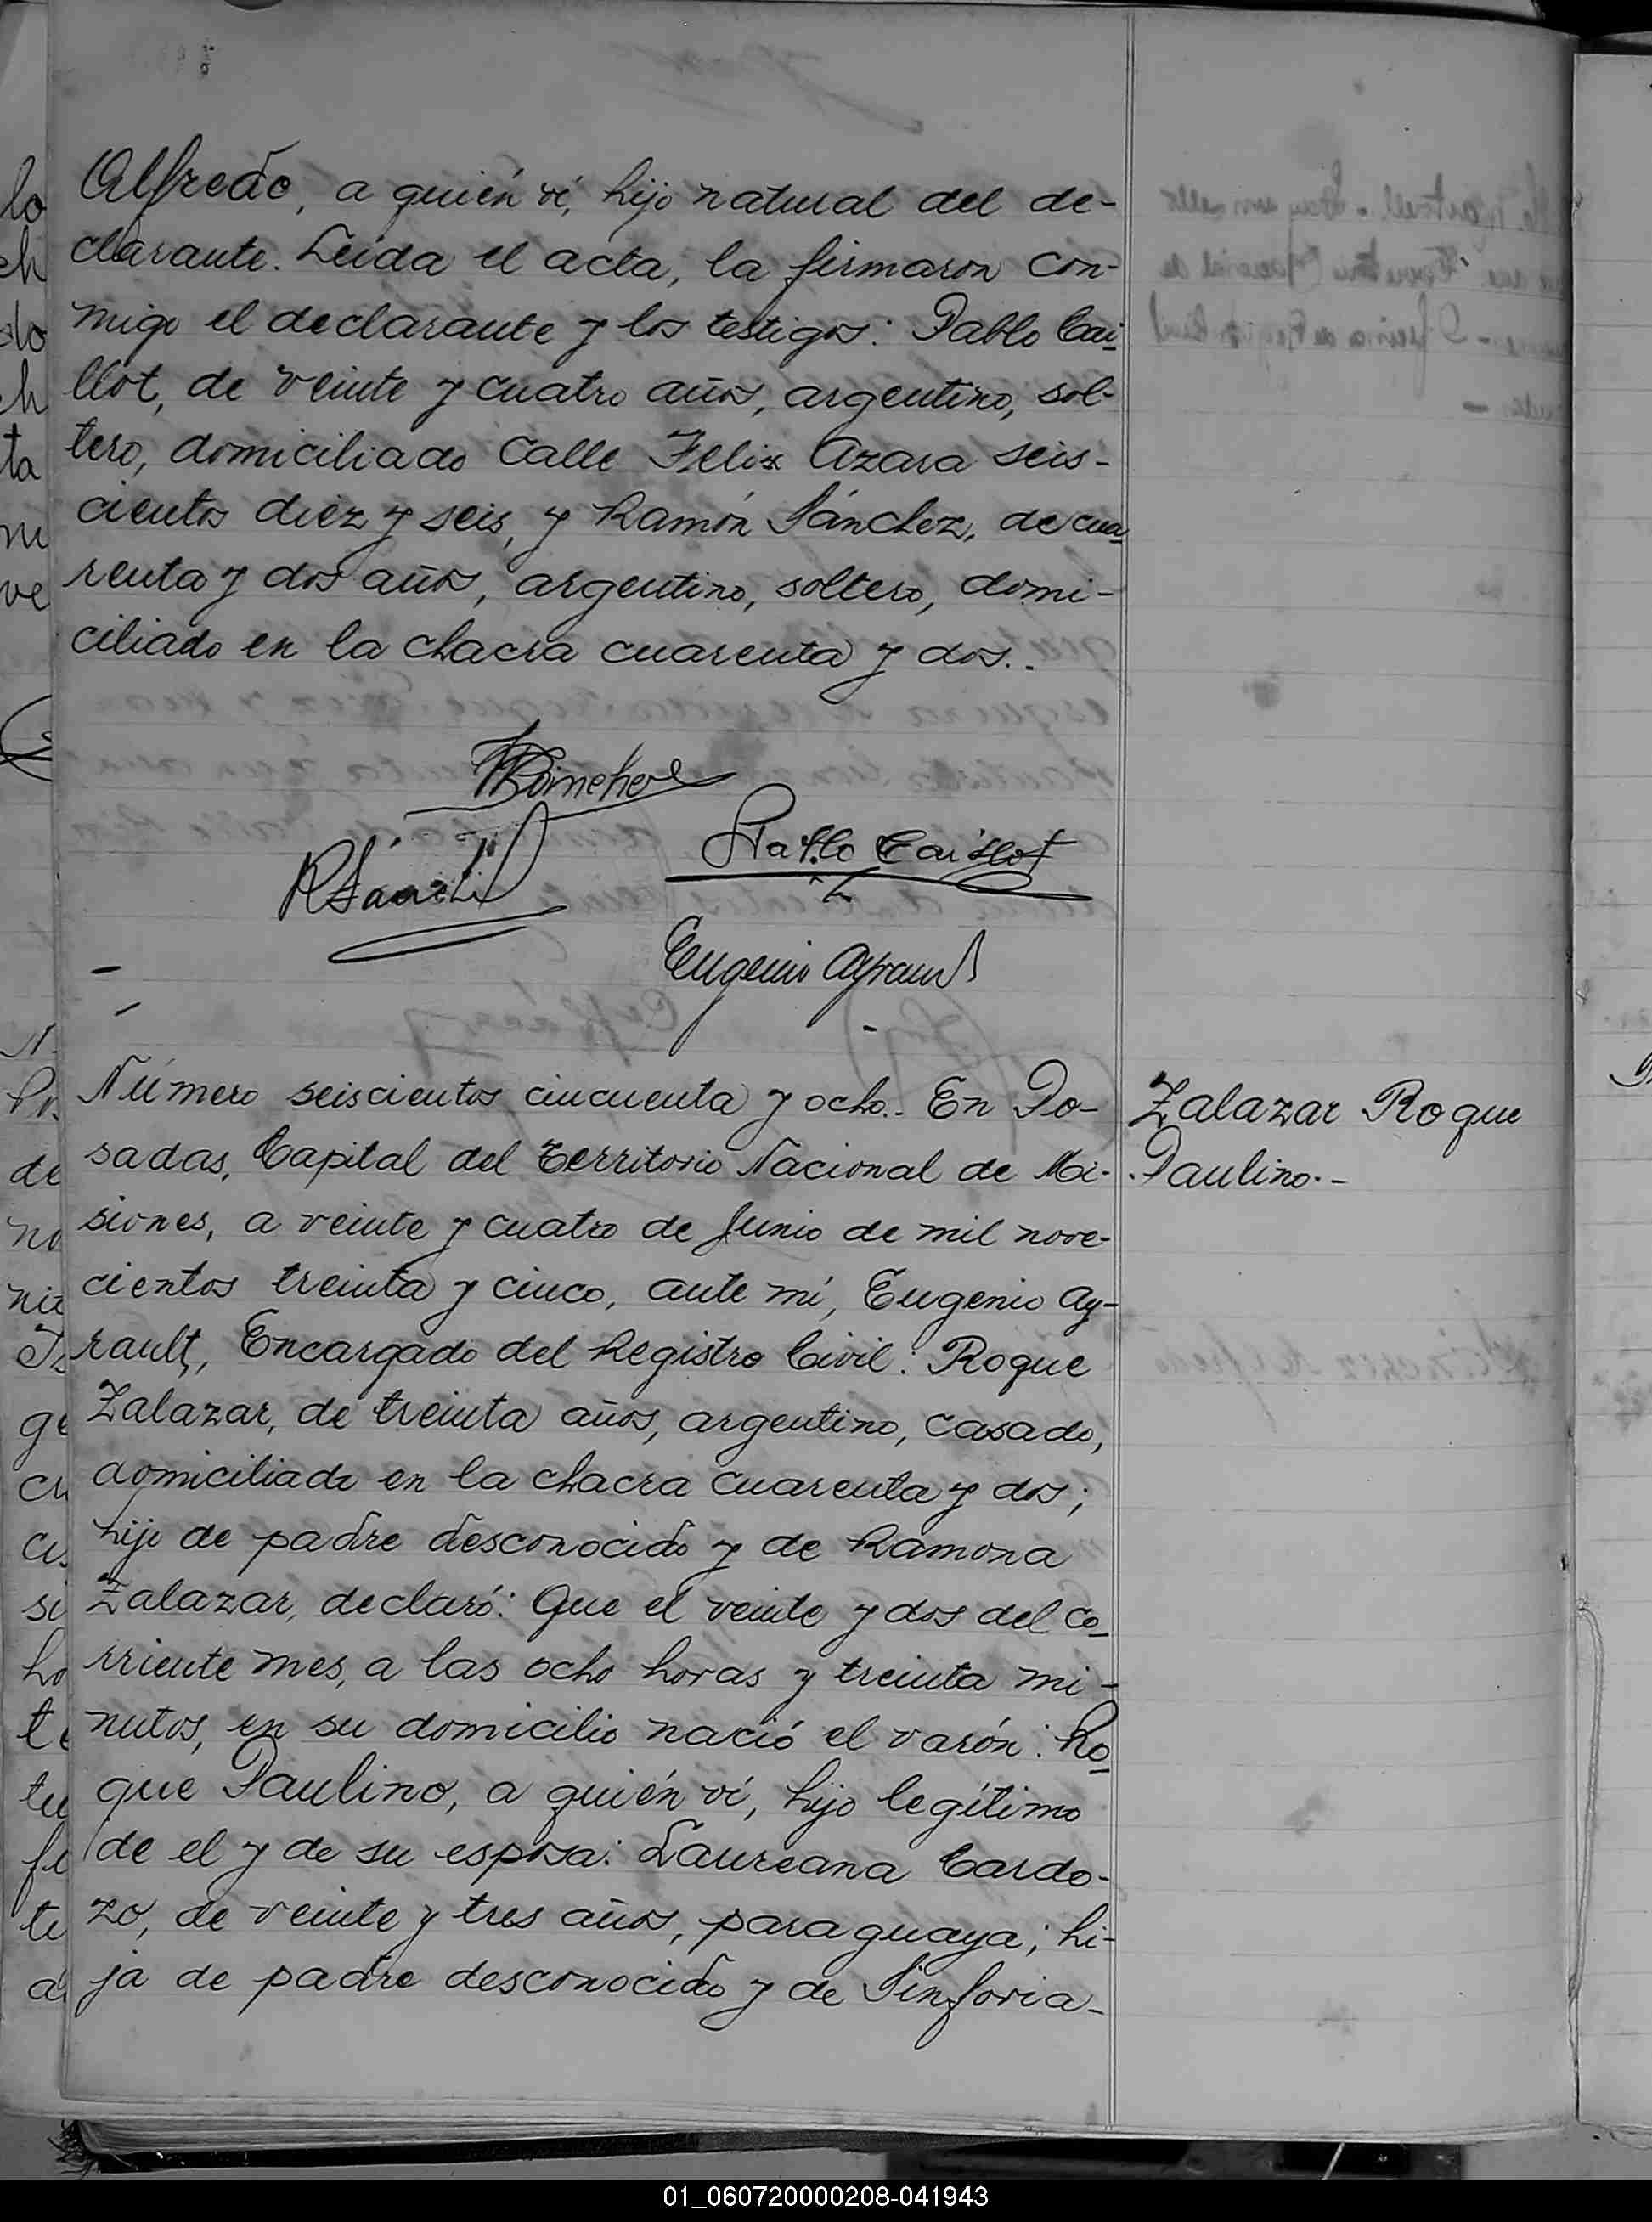 Alfredo, a quién ví, hijo natural del de-
clarante. Leída el acta, la firmaron con-
migo el declarante y los testigos: Pablo Cai-
llot, de veinte y cuatro años, argentino, sol-
tero, domiciliado calle Felix Azara seis-
cientos diez y seis, y Ramón Sánchez, de cua-
renta y dos años, argentino, soltero, domi-
ciliado en la chacra cuarenta y dos..
Pablo Caillot
R Sánchez
Eugenio Ayrault
Número seiscientos cincuenta y ocho.- En Po-
sadas, Capital del Territorio Nacional de Mi-
siones, a veinte y cuatro de Junio de mil nove-
cientos treinta y cinco, ante mí, Eugenio Ay-
rault, Encargado del Registro Civil: Roque
Zalazar, de treinta años, argentino, casado,
domiciliado en la chacra cuarenta y dos;
hijo de padre desconocido y de Ramona
Zalazar, declaró: Que el veinte y dos del co-
rriente mes, a las ocho horas y treinta mi-
nutos, en su domicilio nació el varón: Ro-
que Paulino, a quién ví, hijo legítimo
de el y de su esposa: Laureana Cardo-
zo, de veinte y tres años, paraguaya; hi-
ja de padre desconocido y de Sinforia-
Zalazar Roque
Paulino.-
01_060720000208-041943